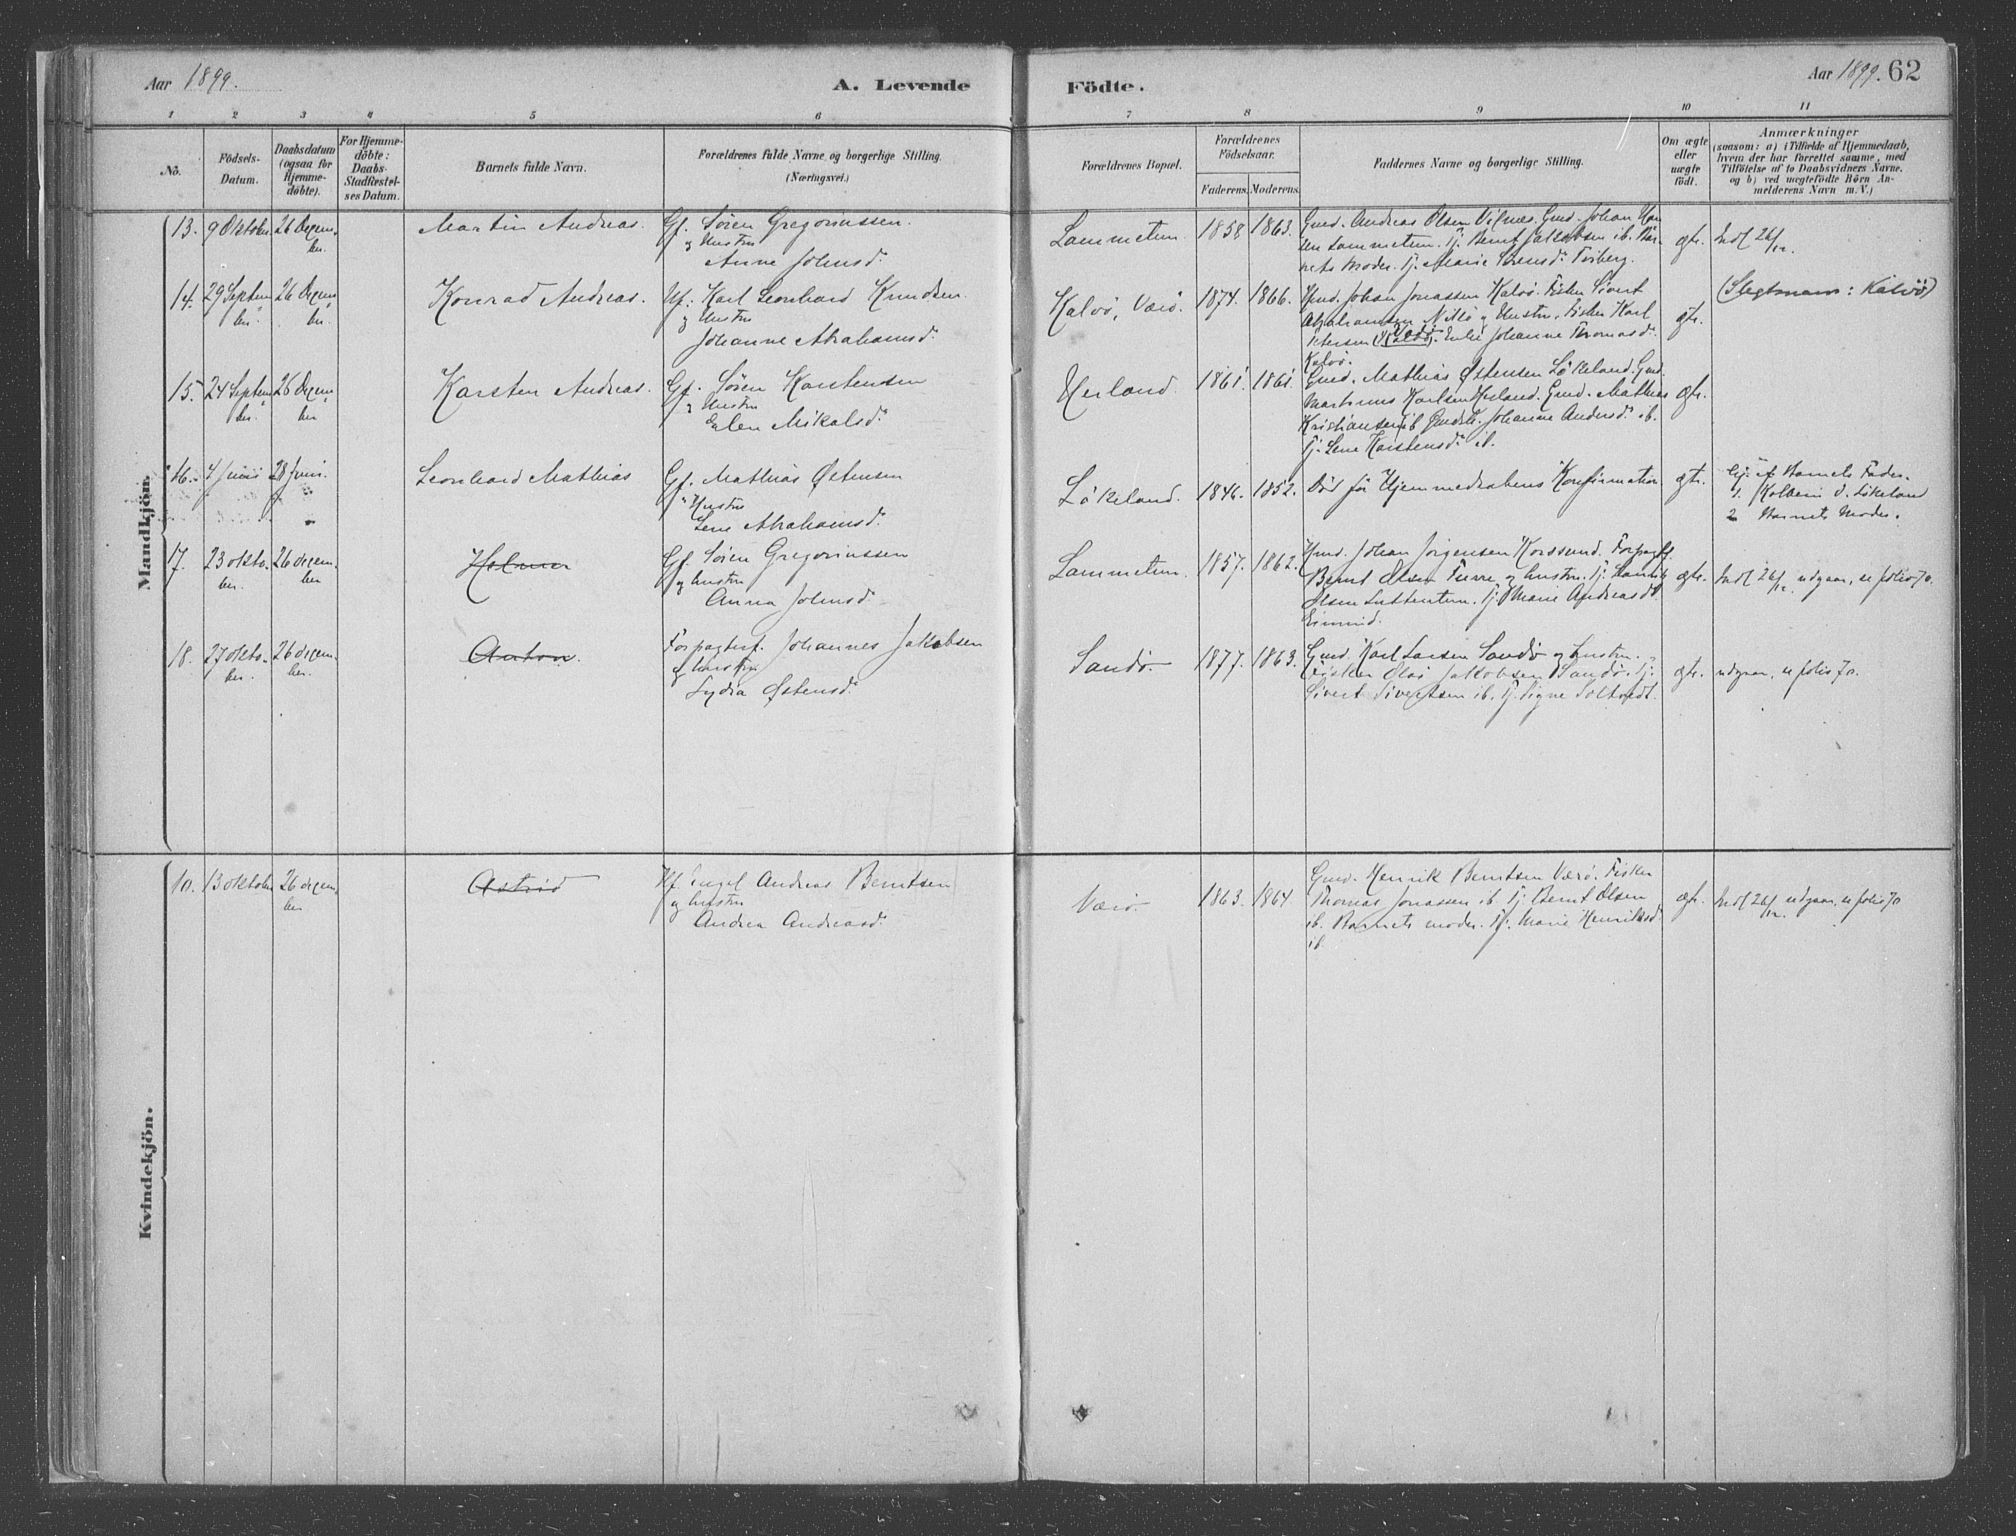 Aar 1899.
A. Levende
Födte.
Aar 1899. 62
1 2 3 4 5 6 7 8 9 10 11
No.
Födsels-
Datum.
Daabsdatum
(ogsaa for
Hjemme-
döbte).
For Hjemme-
döbte:
Daabs-
Stadfæstel-
ses Datum.
Barnets fulde Navn.
Forældrenes fulde Navne og borgerlige Stilling.
(Næringsvei.)
Forældrenes Bopæl.
Forældrenes
Födselsaar.
Faderens. Moderens.
Faddernes Navne og borgerlige Stilling.
Om ægte
eller
uægte
födt.
Anmærkninger
(saasom: a) i Tilfælde af Hjemmedaab,
hvem der har forrettet samme, med
Tilföielse af to Daabsvidners Navne,
og b) ved uægtefödte Börn An-
melderens Navn m. V.)
Mandkjön.
13. 9 Oktober 26 Decem-
ber
Martin Andreas.
Gf. Søren Gregoriussen.
og Hustru
Anne Johnsd.
Lammetun 1858 1863.
Gmd. Andreas Olsen Vilnes. Gmd. Johan Han-
sen Lammetun. Tj. Bernt Jakobsen ib. Bar-
nets Moder. Tj. Marie Sørensd.
ægte.
Indl 26/12.
14. 29 Septem-
ber 26 Decem-
ber
Konrad Andreas.
Karl Leonhard Knudsen
og Hustru
Johanne Abrahamsd.
Kalvö, Værö. 1874. 1866.
Johan Jonassen Kalvö. Fisker Sivert
Abrahamsen og Hustru. Fisker Karl
Petersen Værö. Enke Johanne Thomasd.
Kalvö.
ægte.
(Slegtsnavn: Kalvö)
15. 24 Septem-
ber 26 Decem-
ber
Karsten Andreas.
Gf. Søren Karstensen
og Hustru
Elen Mikalsd.
Herland 1861 1861.
Gmd. Mathias Østensen Lökeland. Gmd.
Martinus Karlsen Herland. Gmd. Mathias
Kristiansen ib. Johanne Andersd. ib.
Tj. Lene Karstensd. ib.
ægte.
16. 4 Juni 28 Juni
Leonhard Mathias
Gf. Mathias Østensen
Hustru
Lene Abrahamsd.
Lökeland. 1846. 1852.
Död för Hjemmedaabens Konfirmation
ægte.
Hj. af Barnets Fader.
1. Kolbein O. Lökeland
2. Barnets Moder.
17. 23 Okto-
ber 26 decem-
ber
Holmer
Gf. Søren Gregoriussen
og Hustru
Anna Johnsd.
Lammetun. 1857. 1862.
Johan Jörgensen Korssund. Forpagtf.
Bernt Olsen Furre og hustru. Tj.
Olsen Tj. Marie Andreasd.
ægte.
Indl 26/12. udgaar, se folio 70.
18. 27 Okto-
ber 26 decem-
ber.
Anton.
Forpagterf. Johannes Jakobsen
og hustru
Lydia Østensd.
Sandö. 1877. 1863.
Gmd. Karl Larsen Sandö og hustru.
Fisker Olai Jakobsen Sandö. Tj.
Sivert Sivertsen ib. Tj. Signe
ægte.
udgaar, se folio 70.
Kvindekjön.
10. 13 Oktober 26 decem-
ber
Astrid
Engel Andreas Berntsen
og hustru
Andrea Andreasd.
Værö. 1863. 1864
Gmd. Henrik Berntsen Værö. Fisker
Thomas Jonassen ib. Tj. Bernt Olsen
ib. Barnets moder. Tj. Marie Henriksd.
ib.
ægte.
Indl 26/12 udgaar, se folio 70